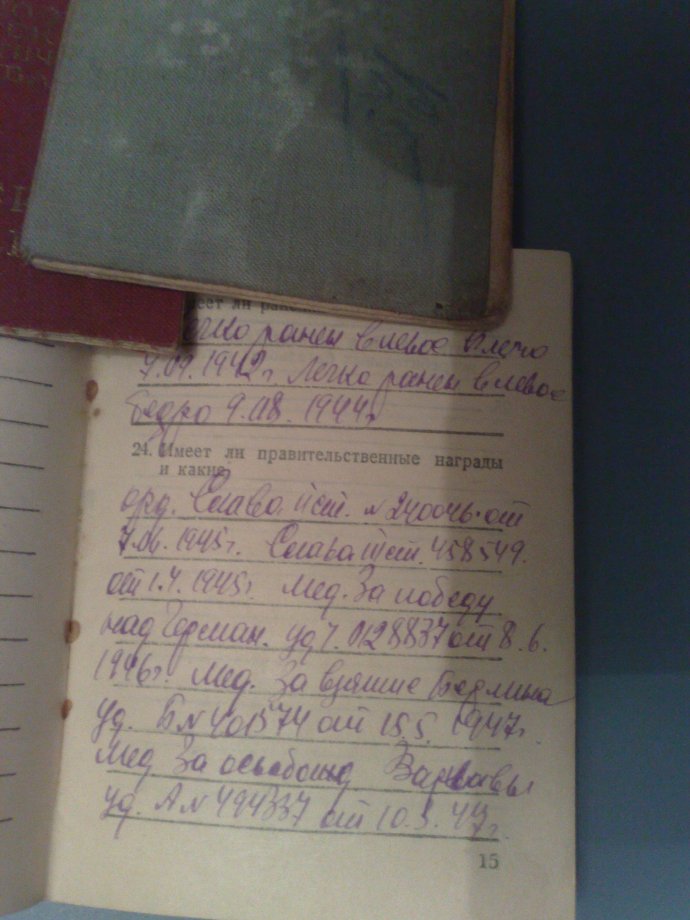 еет ли ранен
легко ранен в левое плечо
7.09.1942г. Легко ранен в левое
бедро 9.08.1944г
24. Имеет ли правительственные награды
и какие
орд. Слава II ст. № 24004б от
7.06.1945г. Слава III ст. 458549.
от 1.4.1945г мед. За победу
над Герман. уд Ч. 0128837 от 8.6.
1946г мед. За взятие Берлина
уд. Б № 401574 от 15.5. 1947г.
Мед За освобожд Варшавы
уд. А № 494337 от 10.3.47г.
15